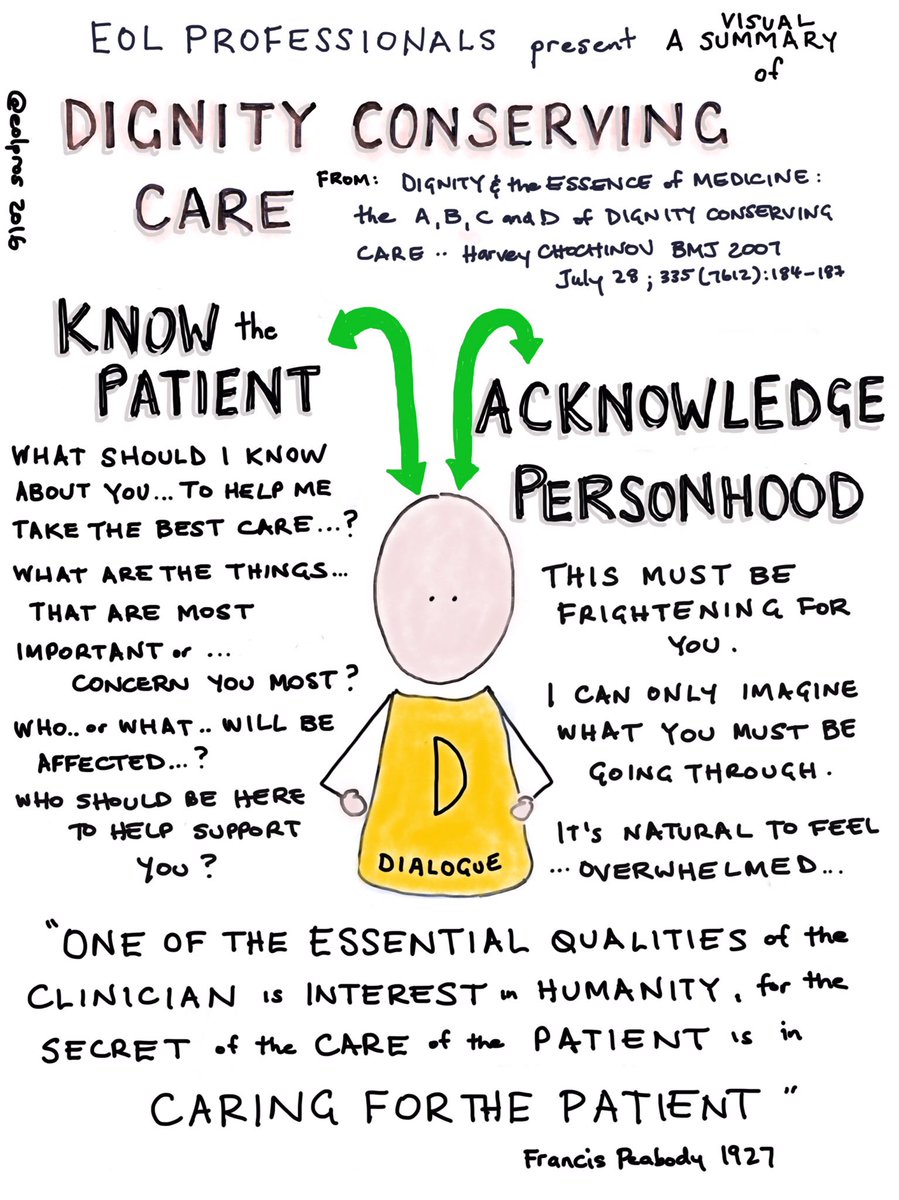 EOL PROFESSIONALS present A VISUAL SUMMARY of
@eolpros 2016
DIGNITY CONSERVING
CARE
FROM: DIGNITY & the ESSENCE of MEDICINE:
the A, B, C and D of DIGNITY CONSERVING
CARE .. Harvey CHOCHINOV BMJ 2007
July 28; 335(7612):184-187
KNOW the
PATIENT
WHAT SHOULD I KNOW
ABOUT YOU... TO HELP ME
TAKE THE BEST CARE...?
WHAT ARE THE THINGS...
THAT ARE MOST
IMPORTANT or ...
CONCERN YOU MOST?
WHO.. or WHAT.. WILL BE
AFFECTED...?
WHO SHOULD BE HERE
TO HELP SUPPORT
YOU?
ACKNOWLEDGE
PERSONHOOD
THIS MUST BE
FRIGHTENING FOR
YOU.
I CAN ONLY IMAGINE
WHAT YOU MUST BE
GOING THROUGH.
IT'S NATURAL TO FEEL
... OVERWHELMED...
D
DIALOGUE
"ONE OF THE ESSENTIAL QUALITIES of the
CLINICIAN is INTEREST in HUMANITY, for the
SECRET of the CARE of the PATIENT is in
CARING FOR THE PATIENT"
Francis Peabody 1927